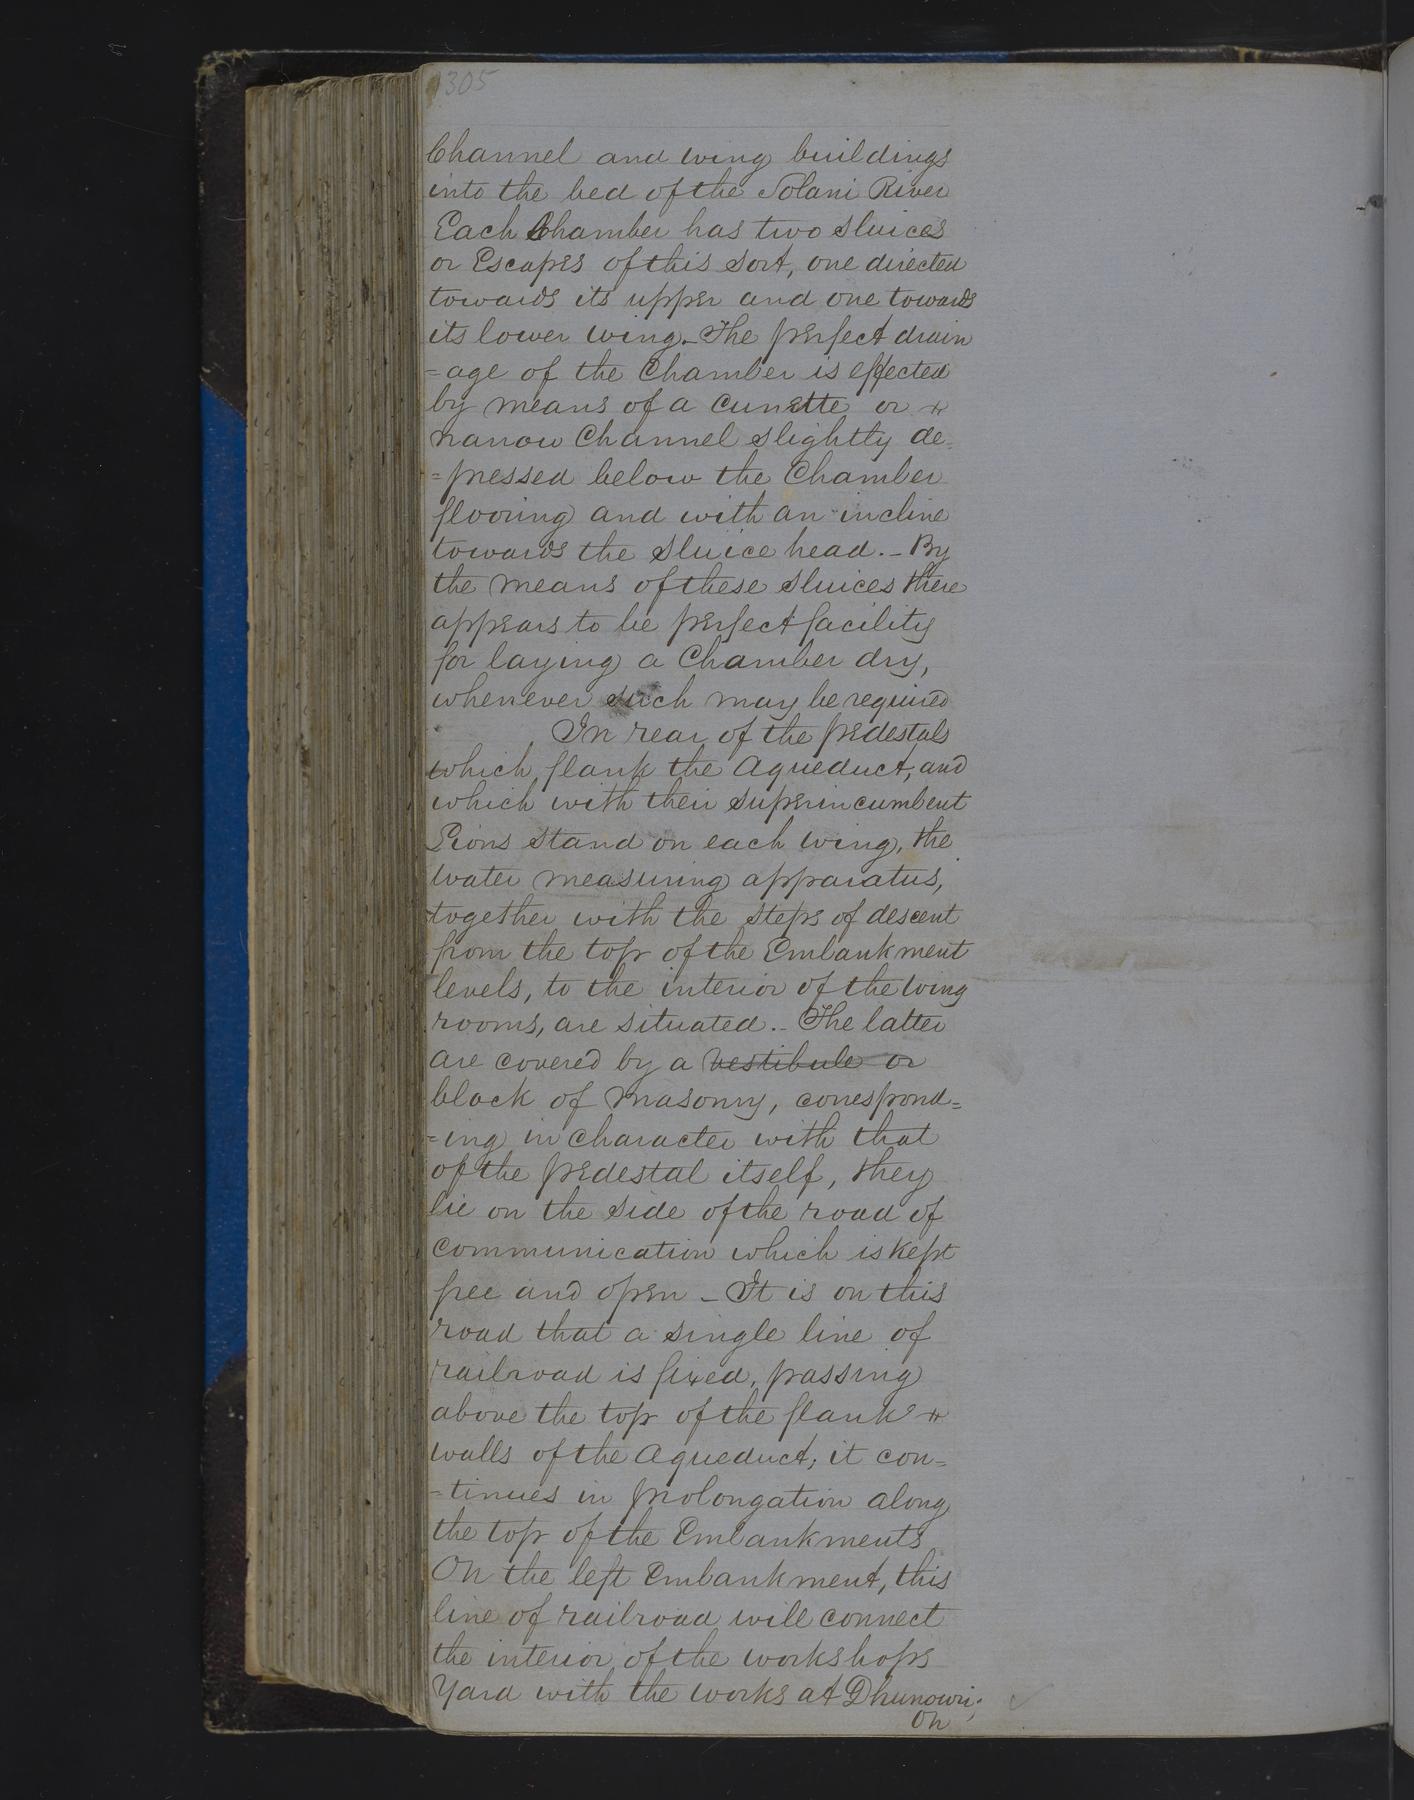 305
Channel and wing buildings
into the bed of the Solani River
Each Chamber has two sluices
or Escapes of this sort, one directed
towards its upper and one towards
its lower wing.- The perfect drain
=age of the Chamber is effected
by means of a cunette or
narrow Channel slightly de
=pressed below the Chamber
flooring and with an incline
towards the sluice head. - By
the means of these sluices there
appears to be perfect facility
for laying a Chamber dry,
whenever such may be required
In rear of the pedestals
which flank the Aqueduct, and
which with their superincumbent
Lions stand on each wing, the
water measuring apparatus,
together with the steps of descent
from the top of the Embankment
levels, to the interior of the wing
rooms, are situated. - The latter
are covered by a vestibule or
block of Masonry, correspond=
=ing in character with that
of the pedestal itself, they
lie on the side of the road of
communication which is kept
free and open - It is on this
road that a single line of
railroad is fixed, passing
above the top of the flank
walls of the Aqueduct; it con=
=tinues in prolongation along
the top of the Embankments
On the left Embankment, this
line of railroad will connect
the interior of the workshops
Yard with the works at Dhunowri;
On